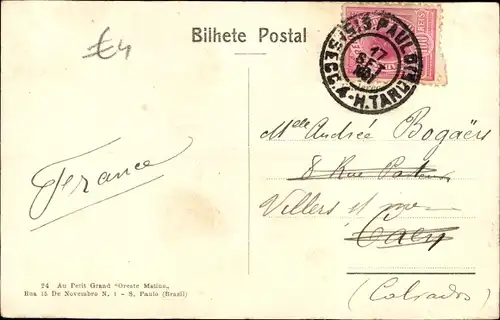 €4
Bilhete Postal
S. PAULO
17
SET
SECC. 4-H. TARDE
Mlle Andrée Bogaërs
8 Rue Pasteur
Villers s/ mer
Caen
(Calvados)
France
24 Au Petit Grand "Oreste Matiua„
Rua 15 De Novembro N. 1 - S. Paulo (Brazil)